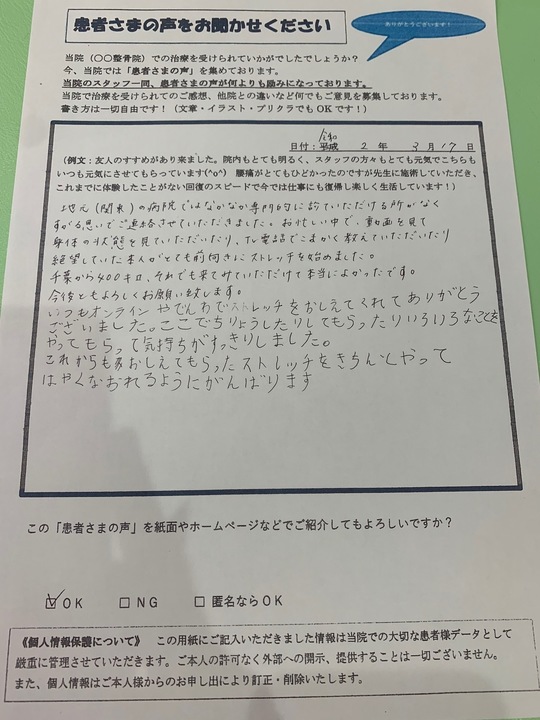 患者さまの声をお聞かせください
ありがとうございます！
当院（〇〇整骨院）での治療を受けられていかがでしたでしょうか？
今、当院では「患者さまの声」を集めております。
当院のスタッフ一同、患者さまの声が何よりも励みになっております。
当院で治療を受けられてのご感想、他院との違いなど何でもご意見を募集しております。
書き方は一切自由です！（文章・イラスト・プリクラでもOKです！）
令和
日付：平成 2 年 3 月 17 日
（例文：友人のすすめがあり来ました。院内もとても明るく、スタッフの方々もとても元気でこちらも
いつも元気にさせてもらっています(^o^) 腰痛がとてもひどかったのですが先生に施術していただき、
これまでに体験したことがない回復のスピードで今では仕事にも復帰し楽しく生活しています！）
地元（関東）の病院ではなかなか専門的に診ていただける所がなく
すがる思いでご連絡させていただきました。お忙しい中で、動画を見て
身体の状態を見ていただいたり、TV電話でこまかく教えていただいたり
絶望していた本人がとても前向きにストレッチを始めました。
千葉から400キロ、それでも来てみていただけて本当によかったです。
今後ともよろしくお願い致します。
いつもオンラインやでんわでストレッチをおしえてくれてありがとう
ございました。ここでちりょうしたりしてもらったりいろいろなことを
やってもらって気持ちがすっきりしました。
これからもおしえてもらったストレッチをきちんとやって
はやくなおれるようにがんばります
この「患者さまの声」を紙面やホームページなどでご紹介してもよろしいですか？
☑OK □NG □匿名ならOK
《個人情報保護について》 この用紙にご記入いただきました情報は当院での大切な患者様データとして
厳重に管理させていただきます。ご本人の許可なく外部への開示、提供することは一切ございません。
また、個人情報はご本人様からのお申し出により訂正・削除いたします。